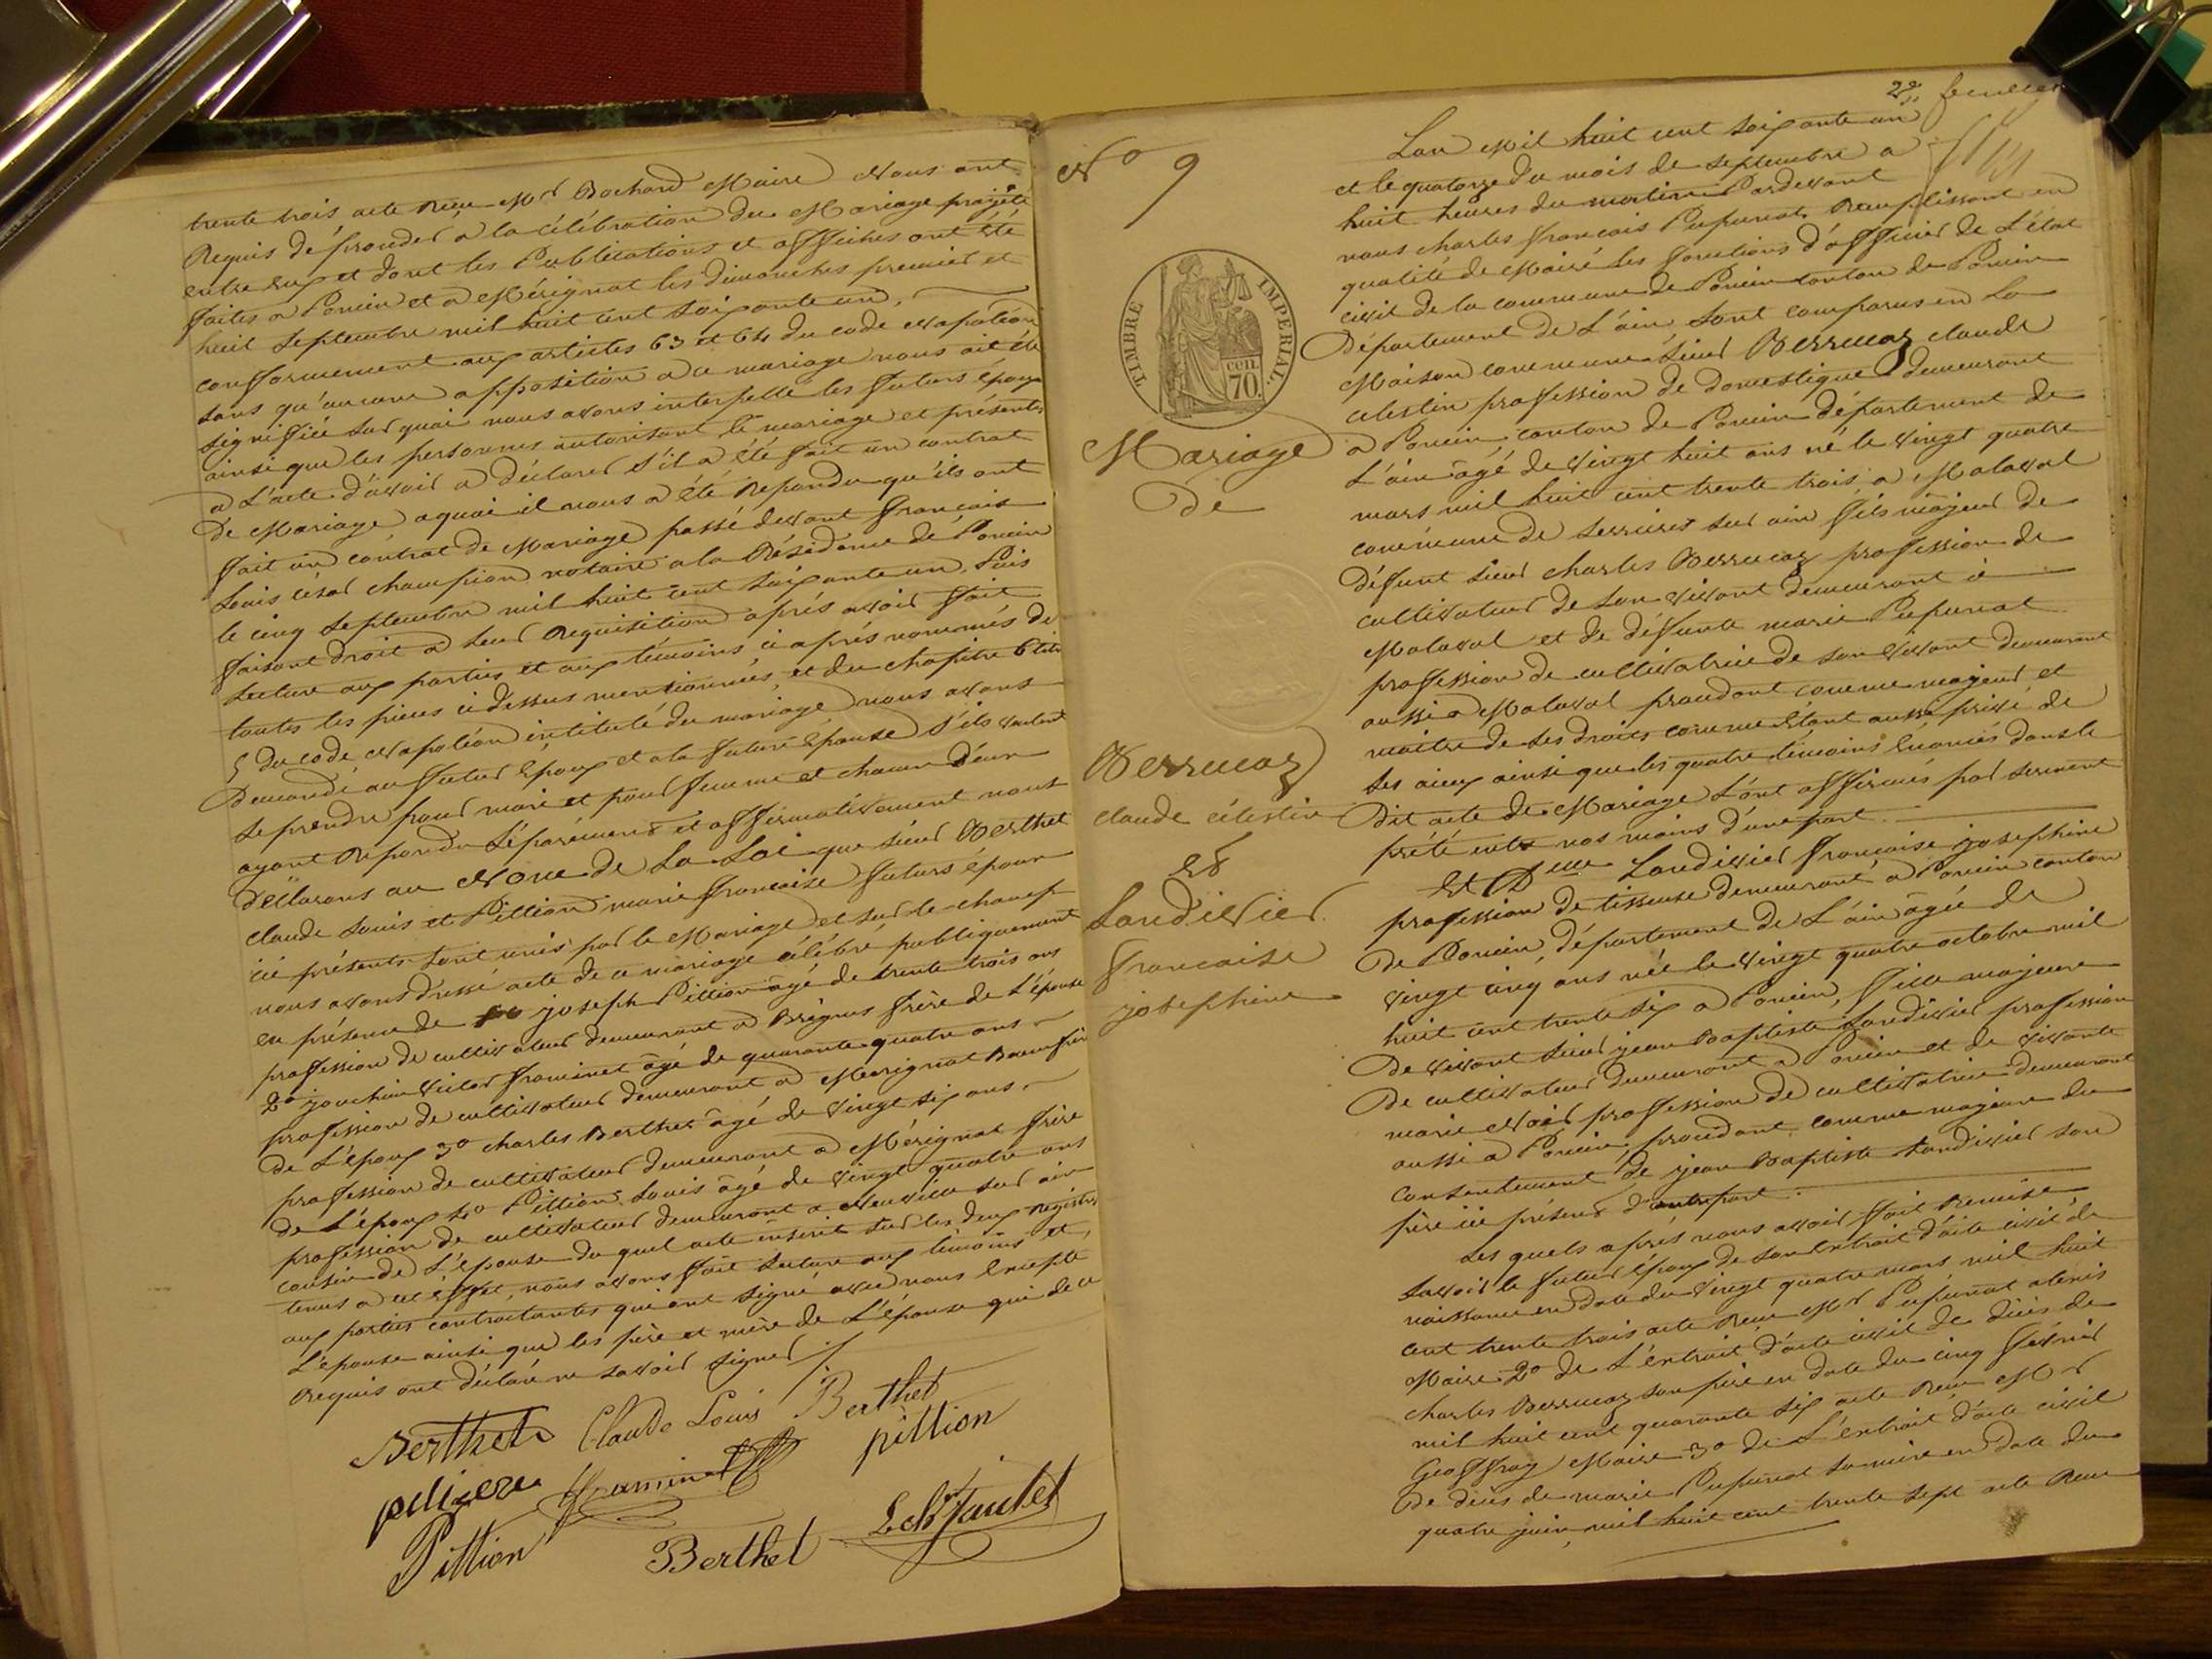 trente trois acte Reçu Mr Bochard Maire Nous ont
Requis de proceder a la célébration du Mariage projeté
entre eux et dont les Publications et affiches ont été
faites a Poncin et a Mérignat les dimanches premier et
huit Septembre mil huit cent soixante un,
conformement aux articles 63 et 64 du code Napoléon
sans qu'aucune opposition a ce mariage nous ait été
signifiée sur quoi nous avons interpellé les futurs époux
ainsi que les personnes autorisant le mariage et présentes
a L'acte d'avoir a déclarer s'il a été fait un contrat
De Mariage a quoi il nous a été Repondu qu'ils ont
fait un contrat de Mariage passé devant francois
Louis césar champion notaire a la Résidence de Poncin
le cinq Septembre mil huit cent soixante un, Puis
faisant droit a leur Requisition après avoir fait
Lecture aux parties et aux témoins ci après nommés de
toutes les pieces ci dessus mentionnées, et du chapitre 6 titre
5 du code Napoléon intitulé du mariage nous avons
Demandé au futur époux et a la future épouse s'ils veulent
se prendre pour mari et pour femme et chacun d'eux
ayant Repondu séparément et affirmativement nous
Déclarons au Nom de La Loi que sieur Berthet
claude Louis et Pittion marie francoise futurs époux
ici présents sont unis par le Mariage et sur le champ
nous avons dressé acte de ce mariage célébré publiquement
en présence de joseph Pittion âgé de trente trois ans
profession de cultivateur demeurant a Brégnes frère de L'épouse
2° jouchim Victor framinet âgé de quarante quatre ans
profession de cultivateur demeurant a Merignat Beaufrère
de L'époux 3° charles Berthet âgé de Vingt six ans
profession de cultivateur demeurant a Mérignat frère
de L'époux 4° Pittion Louis âgé de Vingt quatre ans
profession de cultivateur demeurant a Neuville sur ain
cousin de L'épouse du quel acte inscrit sur les deux registres
tenus a cet effet, nous avons fait Lecture aux témoins et
aux parties contractantes qui ont signé avec nous Excepté
L'épouse ainsi que les père et mère de L'épouse qui de ce
Requis ont déclaré ne savoir signer
Berthet Claude Louis Berthet
framinet pittion
Pittion Berthet
22 feuillet
N° 9
TIMBRE IMPERIAL
cen. 70.
Mariage
De
Berrucaz
claude célestin
Et
Landivier
francaise
josephine
Lan Mil huit cent soixante un
et le quatorze du mois de septembre a
huit heures du matin Pardevant
nous charles francois Pupunat Remplissant en
qualité de Maire les fonctions d'officier de L'état
civil de la commune de Poncin canton de Poncin
Département de L'ain, sont comparus en La
Maison commune sieur Berrucaz claude
celestin profession de domestique demeurant
a Poncin canton de Poncin département de
L'ain âgé de Vingt huit ans né le Vingt quatre
mars mil huit cent trente trois, a Malaval
commune de serrieres sur ain fils majeur de
défunt sieur charles Berrucaz profession de
cultivateur de son vivant demeurant a
Malaval et de défunte marie Pupunat
profession de cultivatrice de son Vivant demeurant
aussi a Malaval procedant comme majeur et
maitre de ses droits comme étant aussi privé de
ses aieux ainsi que les quatre témoins Enoncés dans le
Dit acte de Mariage L'ont affirmés par serment
prété entre nos mains d'une part.
Et Delle Landivier francoise josephine
profession de tisseuse demeurant a Poncin canton
De Poncin, département de L'ain âgée de
vingt cinq ans née le Vingt quatre octobre mil
huit cent trente six a Poncin, fille majeure
De vivant sieur jean Baptiste Landivier profession
De cultivateur demeurant a Poncin et de vivante
marie Noir profession de cultivatrice demeurant
aussi a Poncin, procedant comme majeure du
consentement de jean Baptiste Landivier son
père ici présent d'autre part.
Les quels après nous avoir fait Remise
savoir le futur époux de son Extrait d'acte civil de
naissance en date du Vingt quatre mars mil huit
cent trente trois acte Reçu Mr Pupunat alexis
Maire 2° de L'extrait d'acte civil de décès de
charles Berrucaz son père en date du cinq février
mil huit cent quarante six acte Reçu Mr
Geoffray Maire 3° de L'extrait d'acte civil
De décès de marie Pupunat sa mère en date du
quatre juin, mil huit cent trente sept acte Reçu